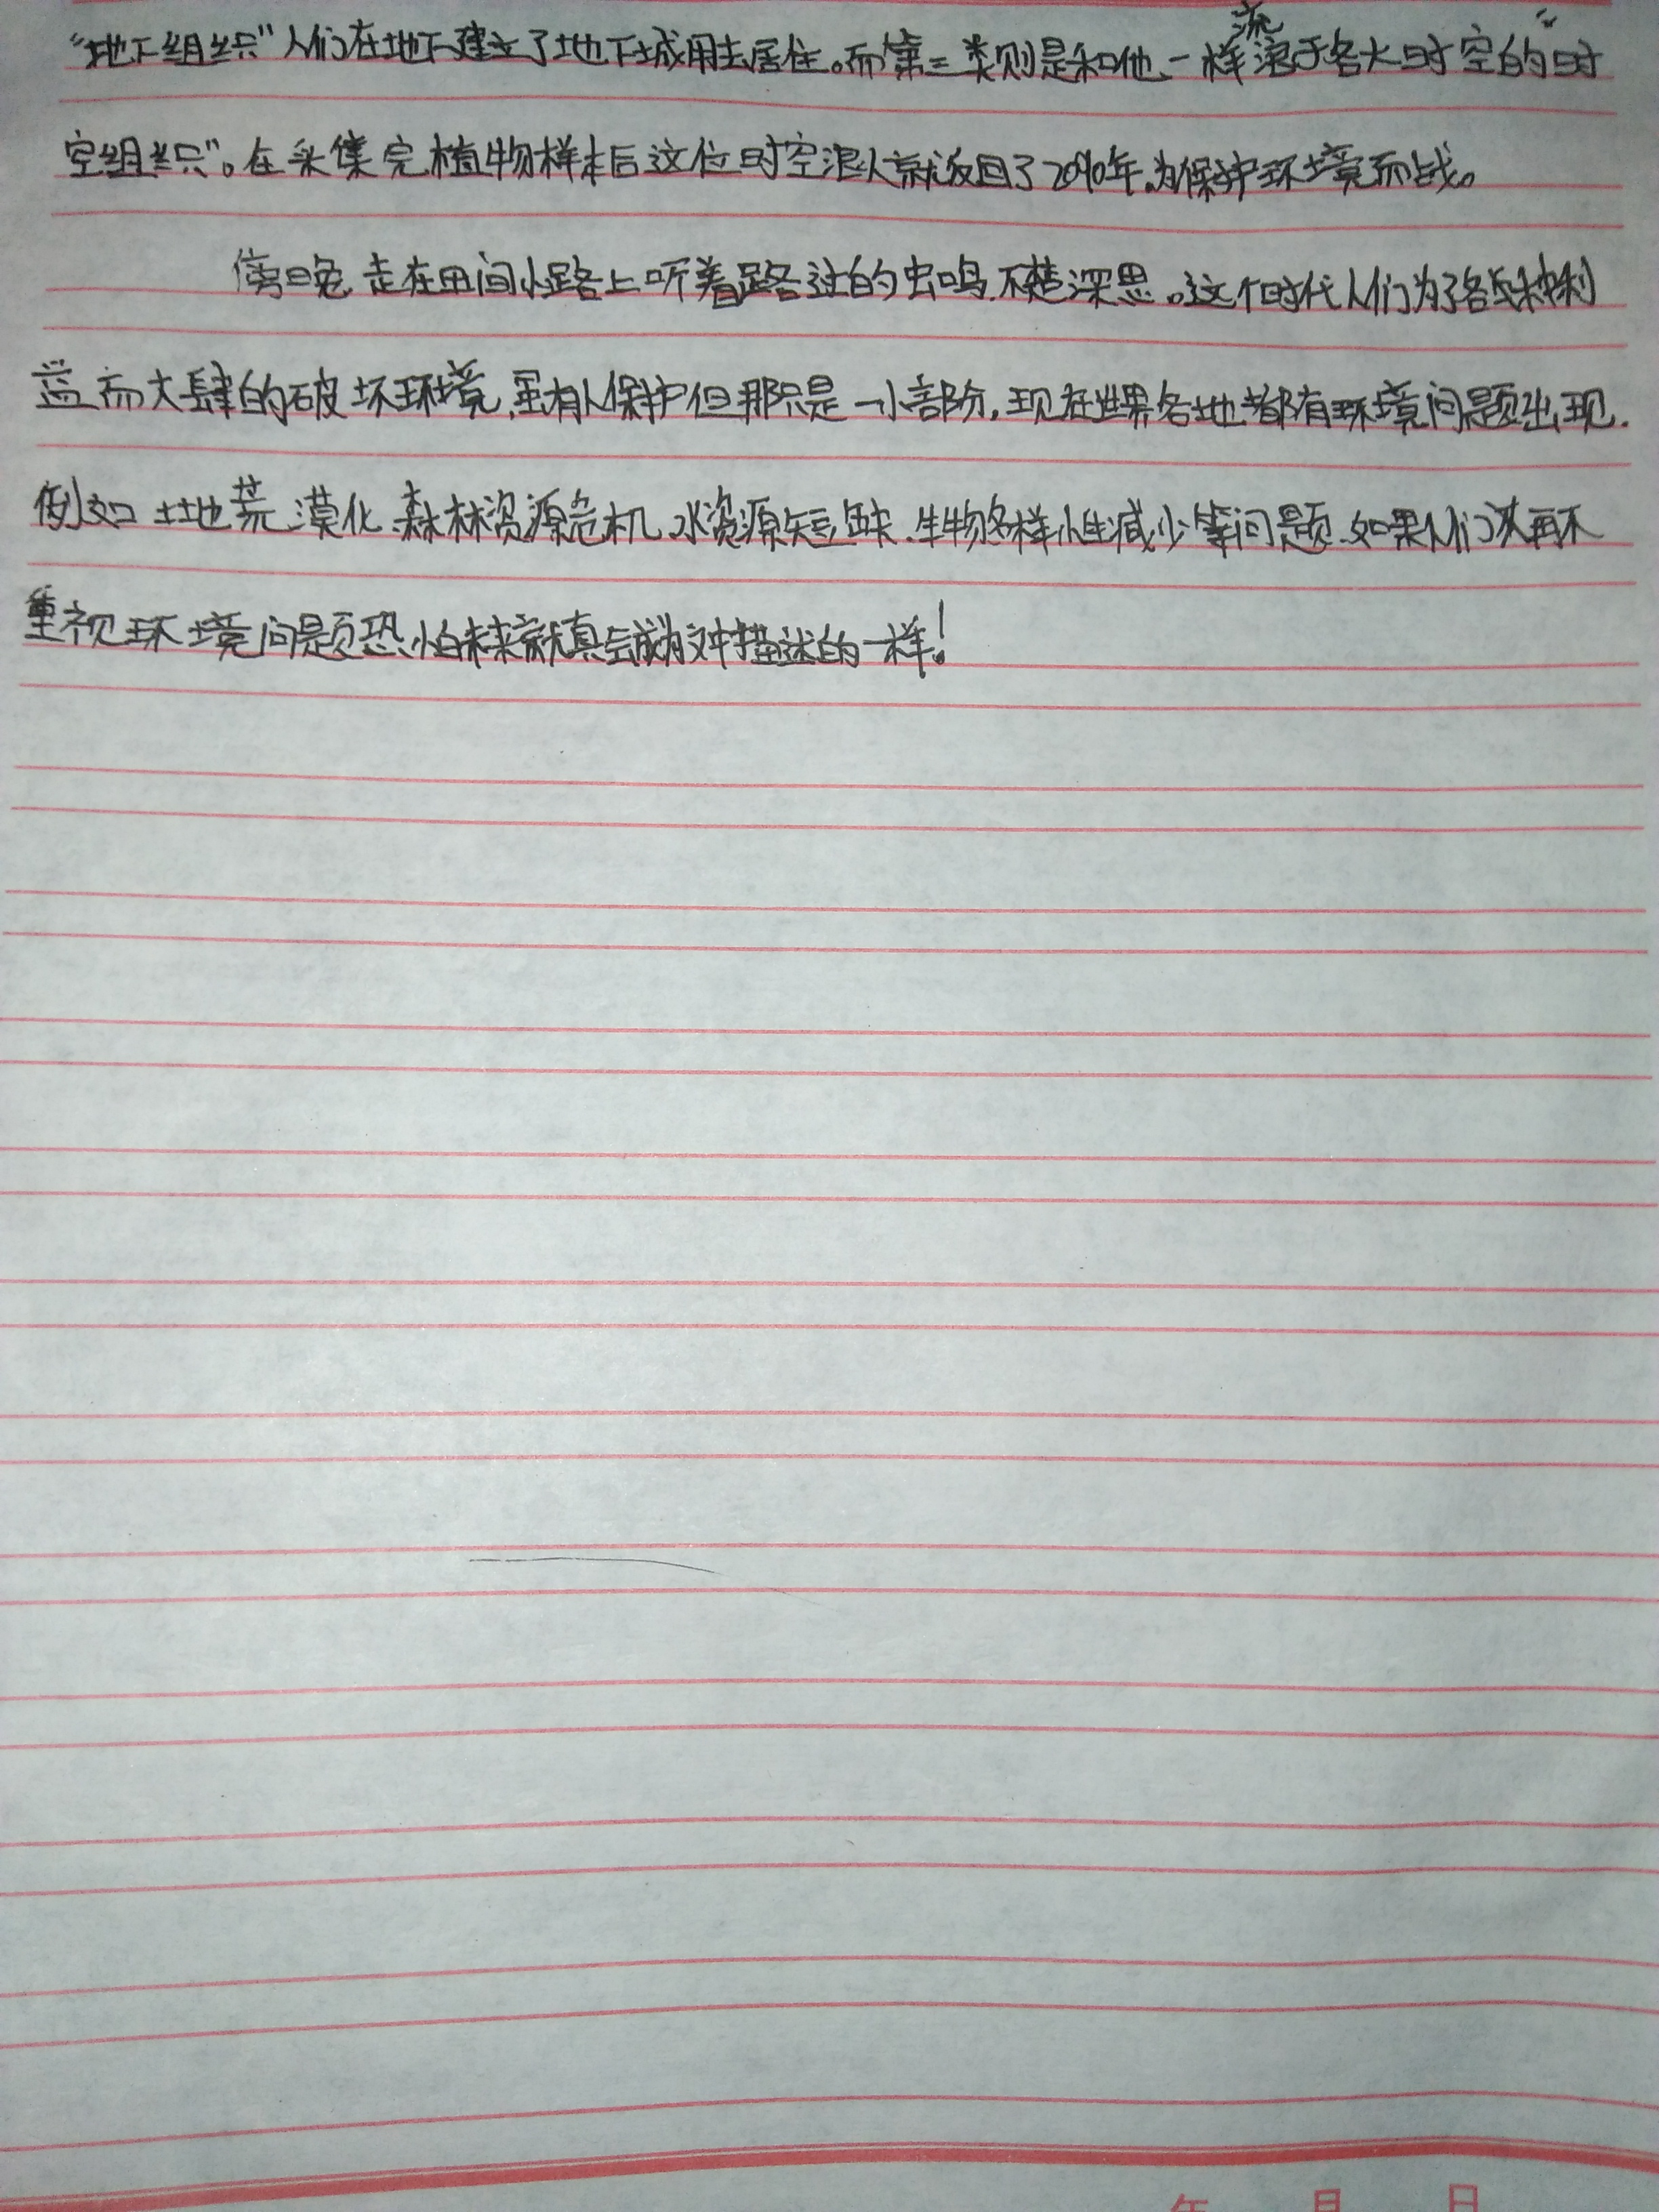 “地下组织”人们在地下建立了地下城用去居住。而第三类则是和他一样流浪于各大时空的“时
空组织”。在采集完植物样本后这位时空浪人就返回了2090年,为保护环境而战。
傍晚走在田间小路上听着路过的虫鸣,不楚深思。这个时代人们为了各种利
益而大肆的破坏环境,虽有人保护但那只是一小部分,现在世界各地都有环境问题出现.
例如土地荒漠化,森林资源危机,水资源短缺,生物多样性减少等问题,如果人们再不
重视环境问题恐怕未来就真会成为文中描述的一样!
年 月 日